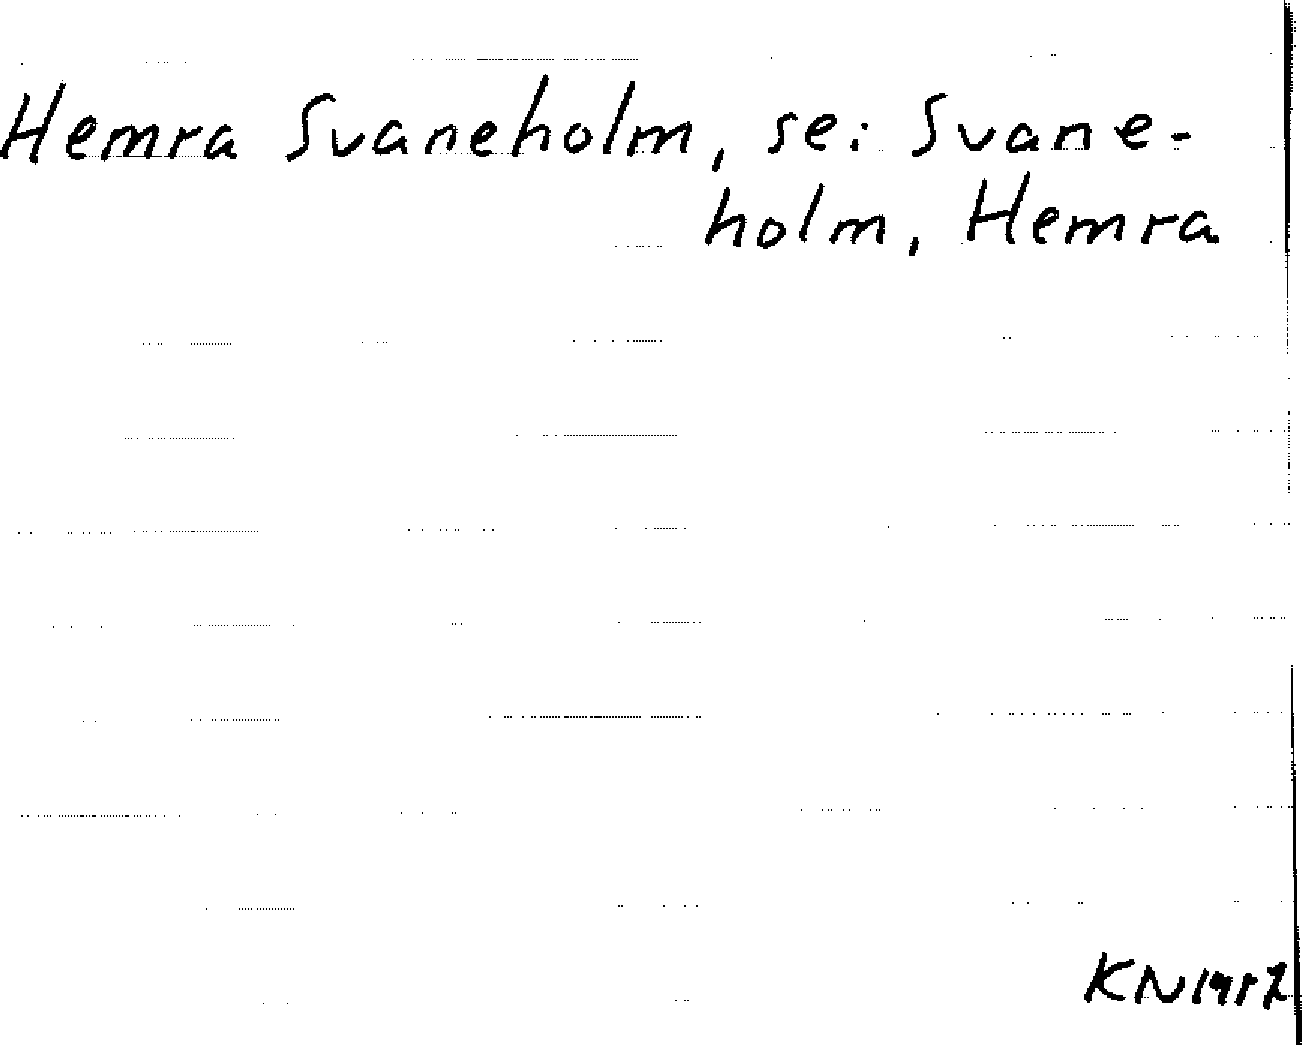 Hemra Svaneholm, se: Svane-
holm, Hemra